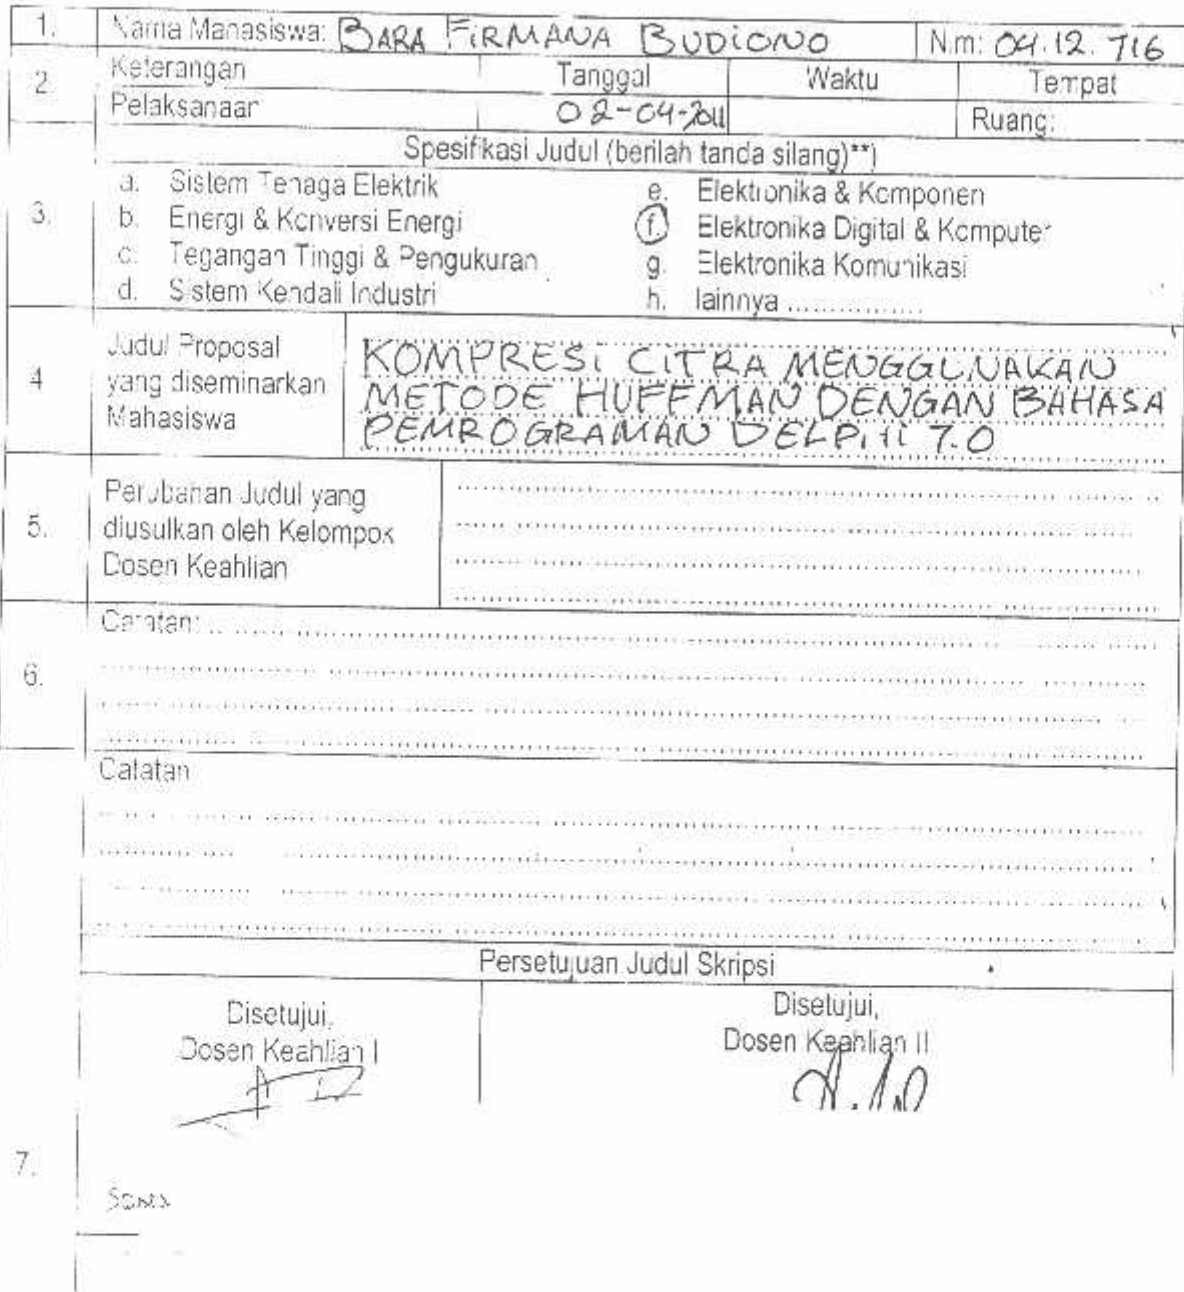 1. Nama Mahasiswa: BARA FIRMANA BUDIONO Nim: 04.12.716
2. Keterangan Tanggal Waktu Tempat
Pelaksanaan 02-04-2011 Ruang:
Spesifikasi Judul (berilah tanda silang)**)
3.
a. Sistem Tenaga Elektrik
b. Energi & Konversi Energi
c. Tegangan Tinggi & Pengukuran
d. Sistem Kendali Industri
e. Elektronika & Komponen
f. Elektronika Digital & Komputer
g. Elektronika Komunikasi
h. lainnya ...............
4 Judul Proposal
yang diseminarkan
Mahasiswa
KOMPRESI CITRA MENGGUNAKAN
METODE HUFFMAN DENGAN BAHASA
PEMROGRAMAN DELPHI 7.0
5. Perubahan Judul yang
diusulkan oleh Kelompok
Dosen Keahlian
6. Catatan:
Catatan
Persetujuan Judul Skripsi
7.
Disetujui,
Dosen Keahlian I
Disetujui,
Dosen Keahlian II